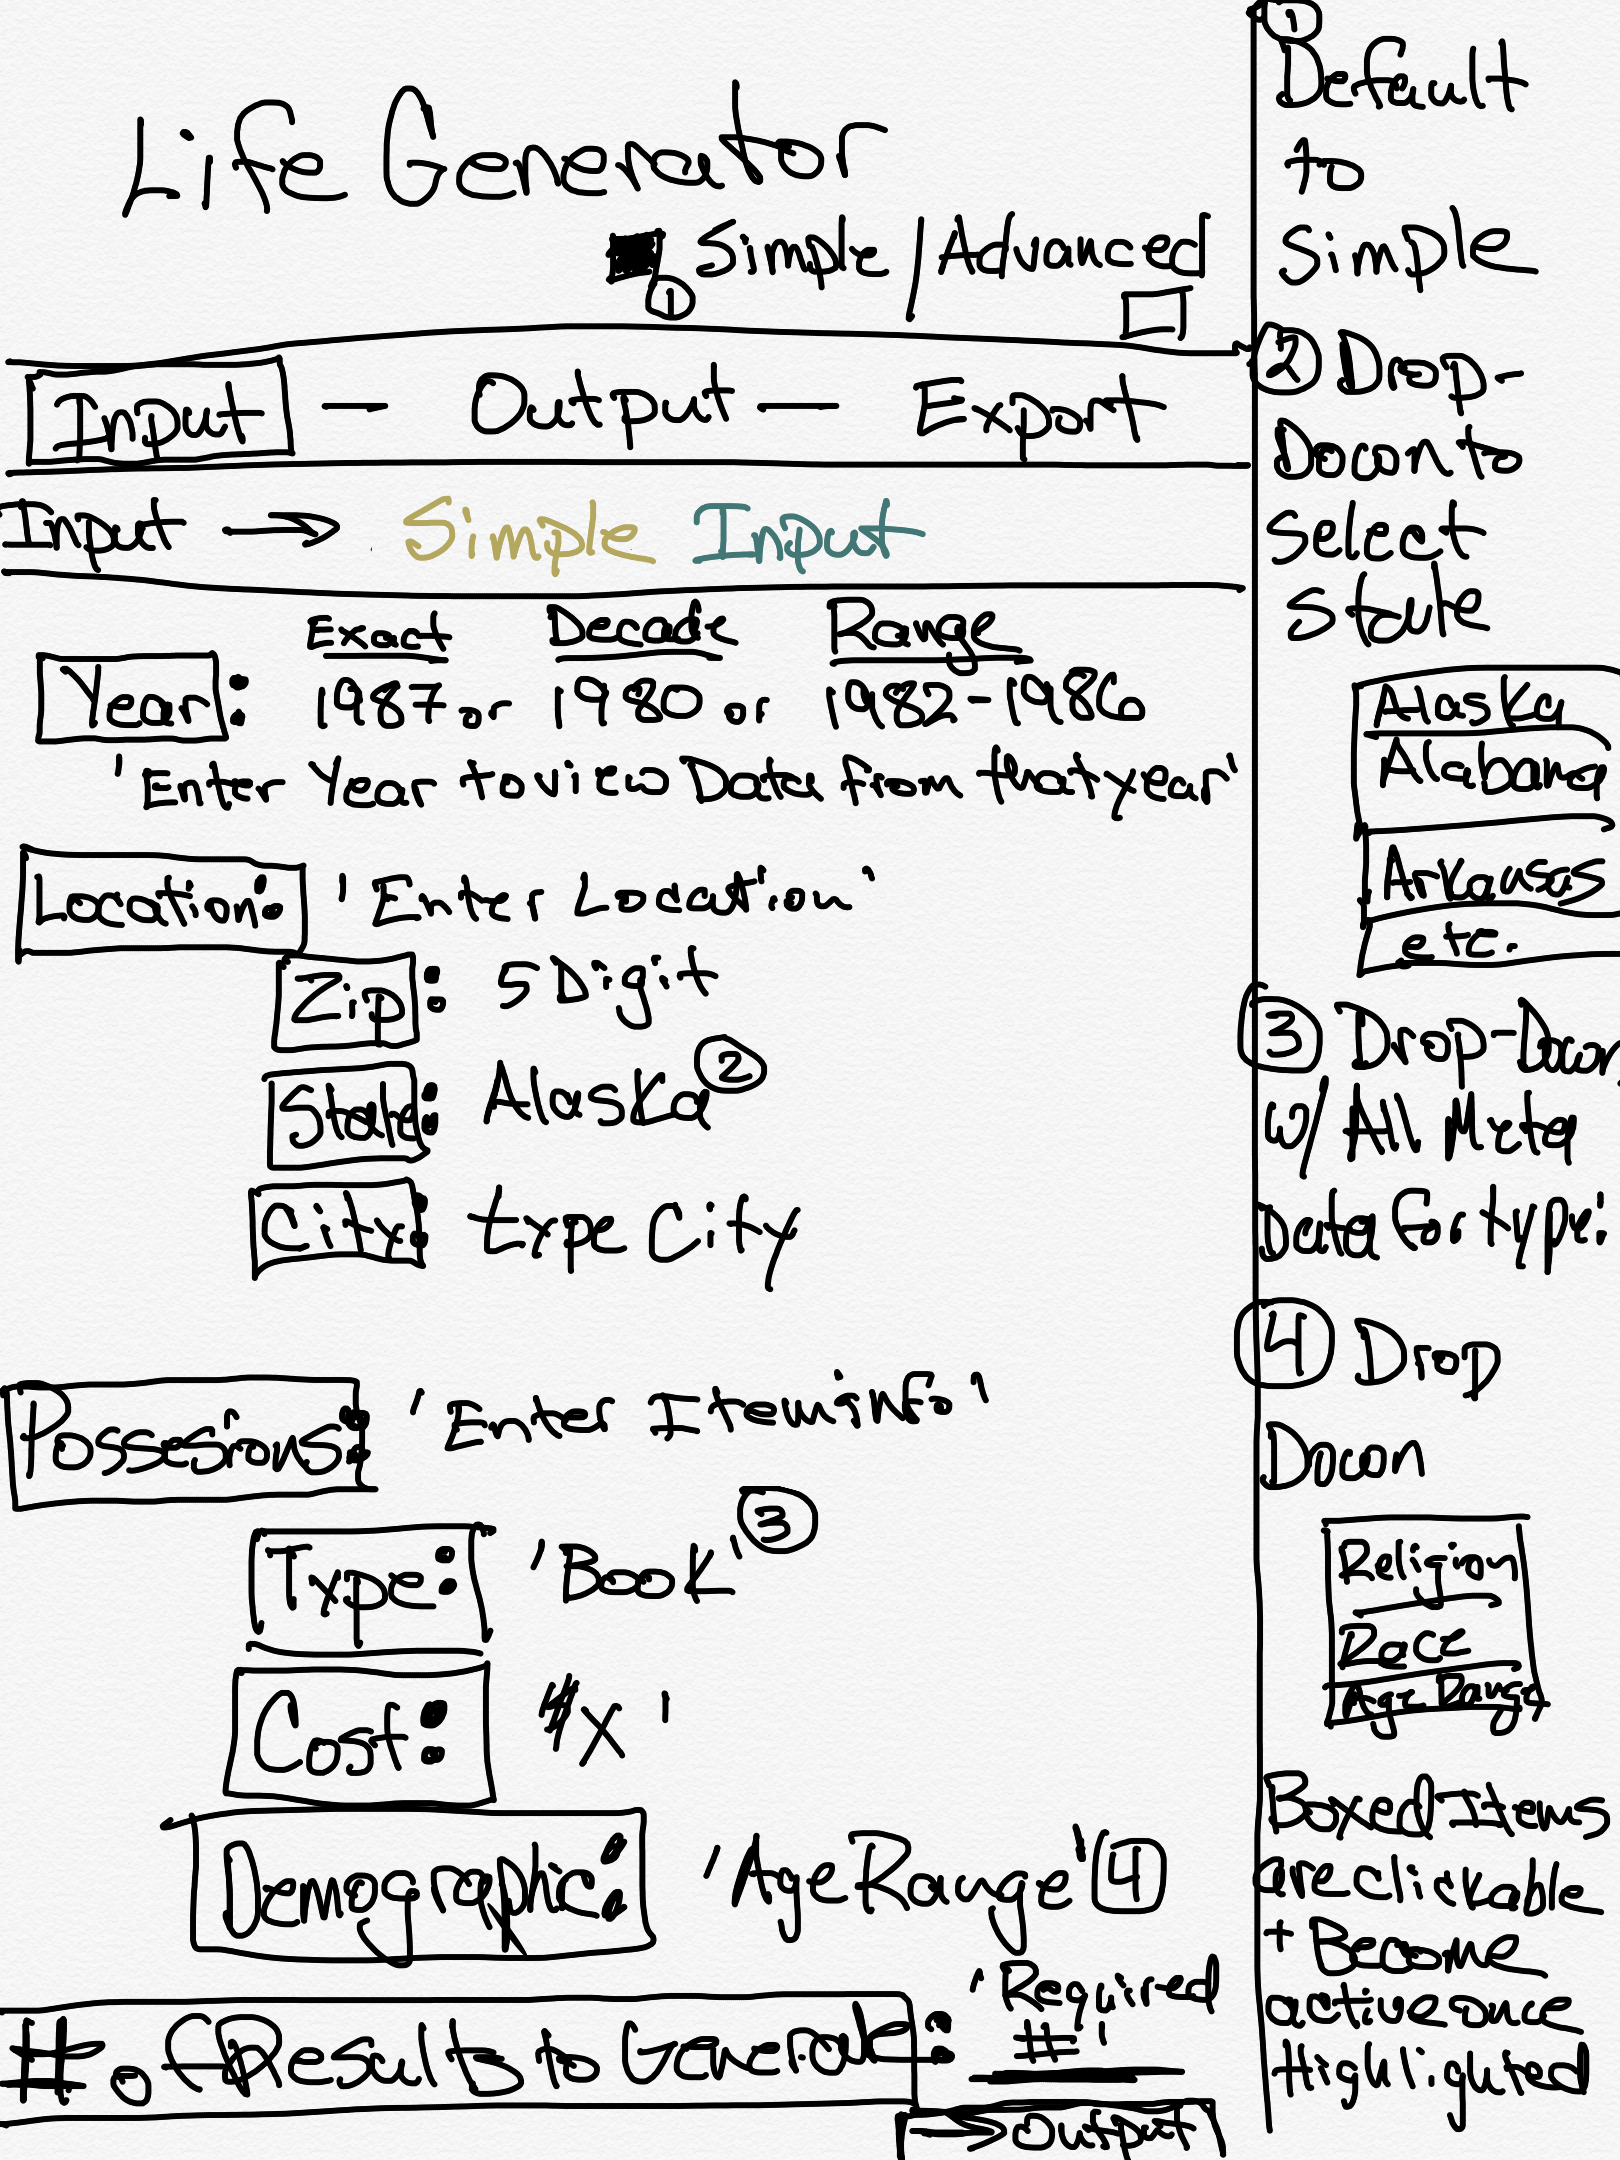 Life Generator
① Simple / Advanced
Input — Output — Export
Input → Simple Input
Exact Decade Range
Year: 1987 or 1980 or 1982-1986
'Enter Year to view Data from that year'
Location: 'Enter Location'
Zip: 5 Digit
State: Alaska ②
City: type City
Possesions: 'Enter Item info'
Type: 'Book' ③
Cost: #x'
Demographic: 'Age Range' 4
# of Results to Generate: 'Required
#'
→ output
①
Default
to
Simple
② Drop-
Down to
Select
State
Alaska
Alabama
Arkansas
etc.
③ Drop-Down
w/ All Meta
Data for type:
④ Drop
Down
Religion
Race
Age Range
Boxed Items
are clickable
+ Become
active once
Highlighted